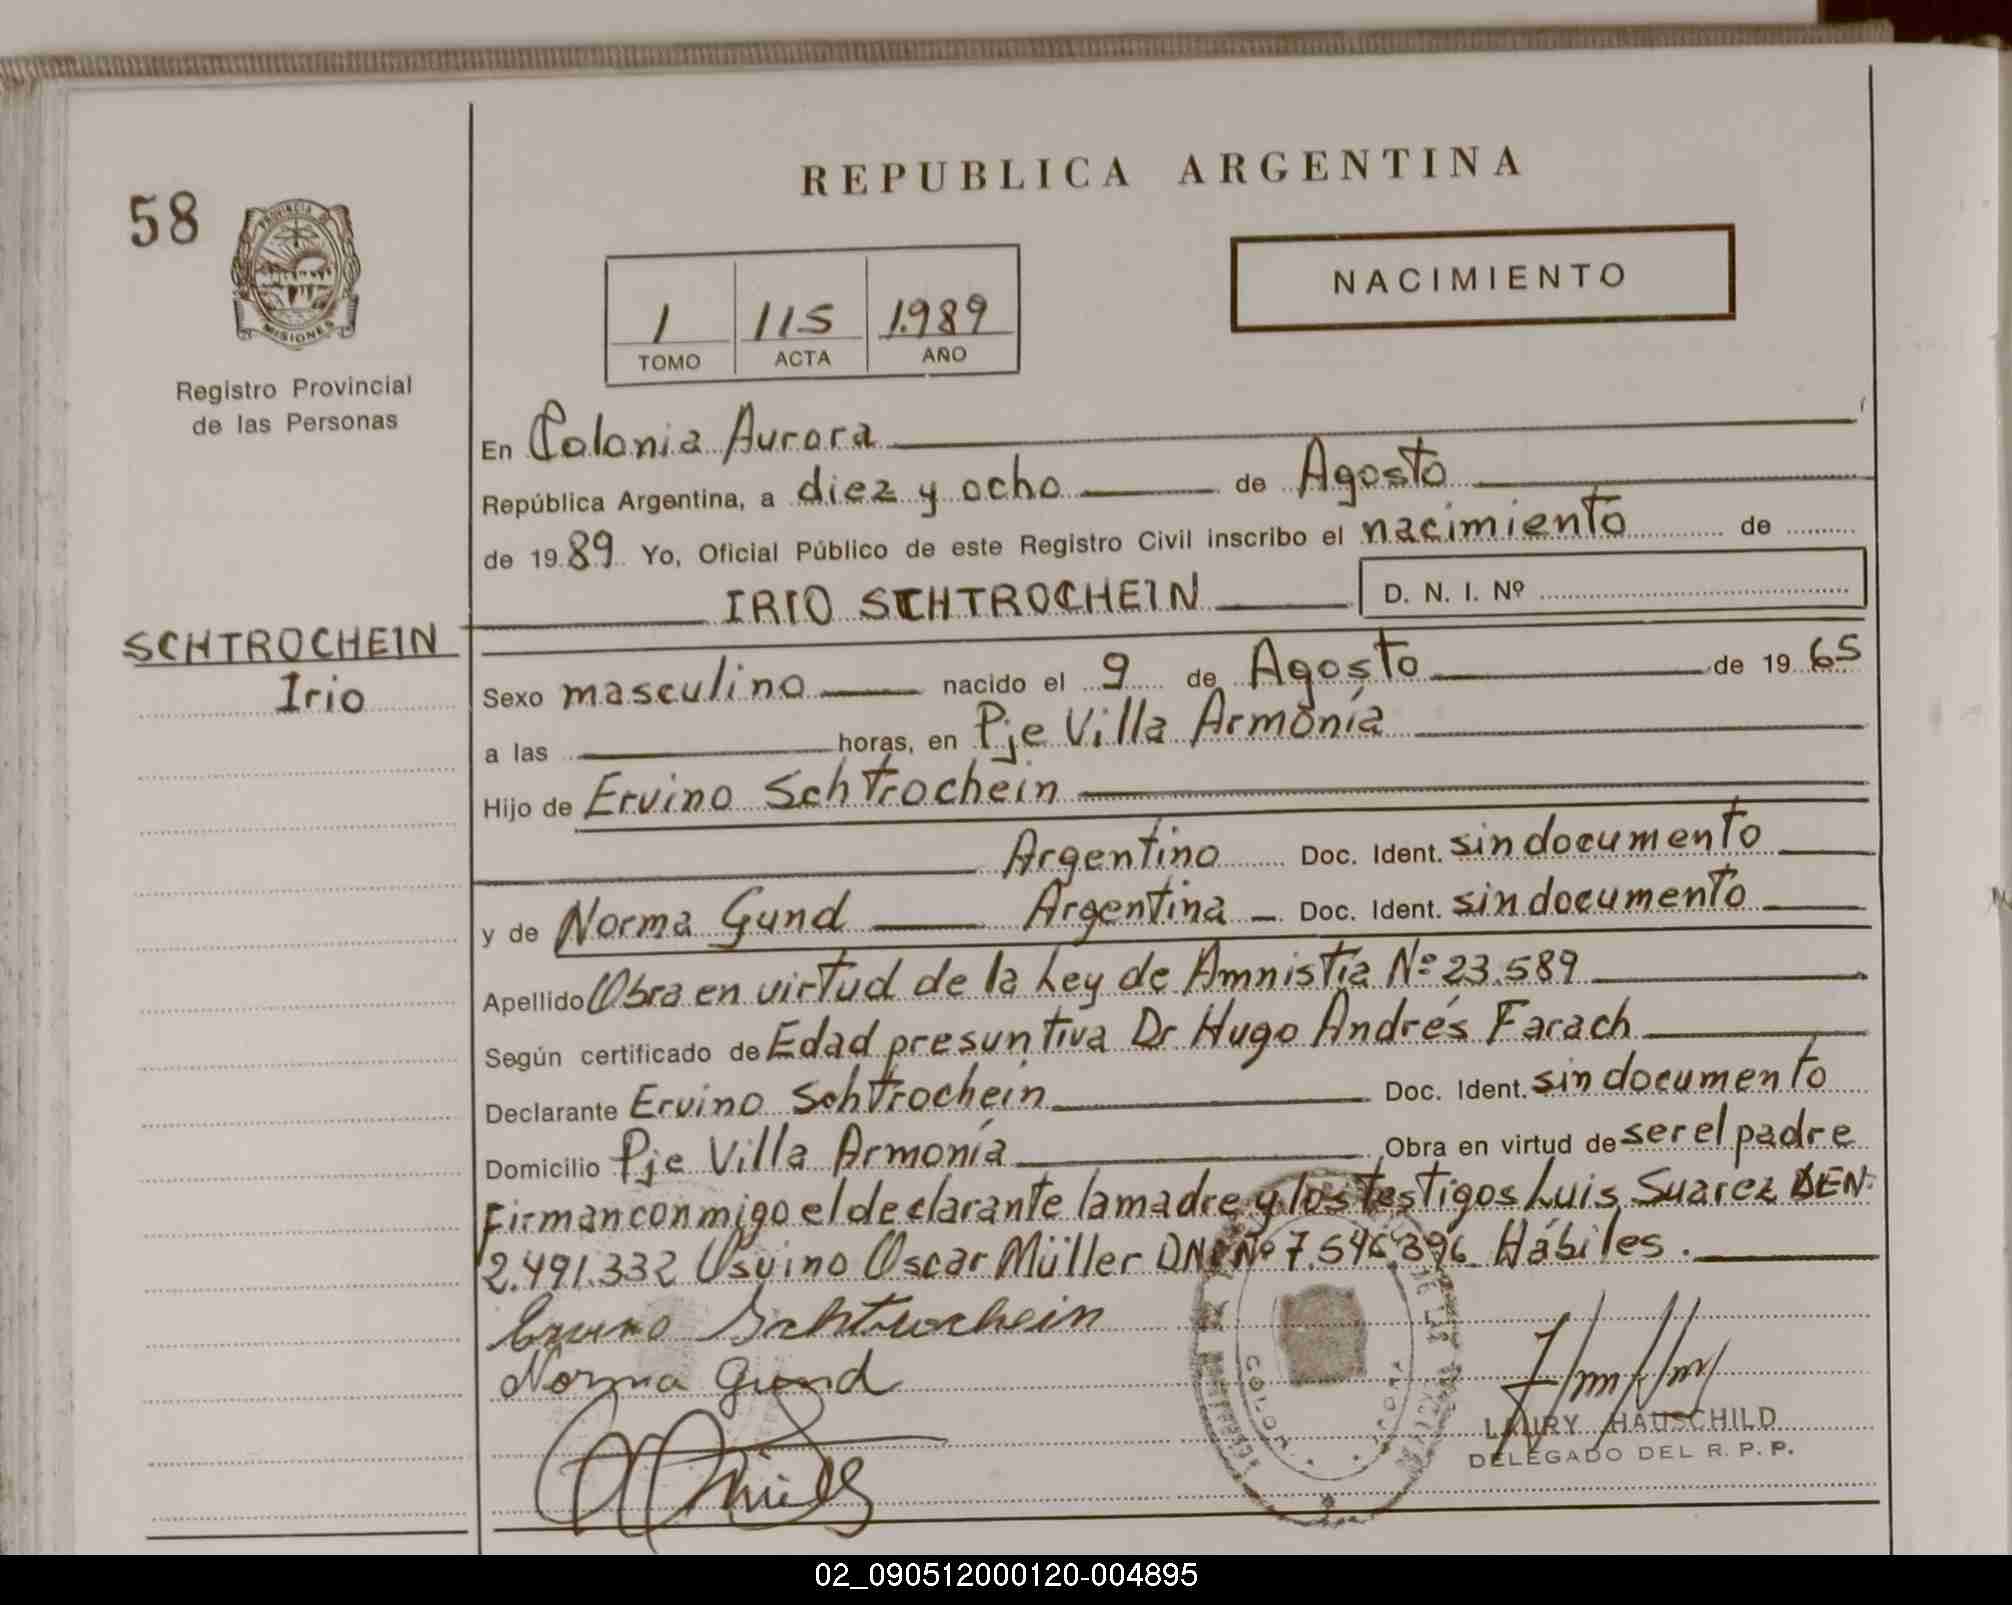 REPUBLICA ARGENTINA
58
PROVINCIA DE
MISIONES
NACIMIENTO
1 115 1.989
TOMO ACTA AÑO
Registro Provincial
de las Personas
En Colonia Aurora
República Argentina, a diez y ocho de Agosto
de 1989 Yo, Oficial Público de este Registro Civil inscribo el nacimiento de
IRIO SCHTROCHEIN D. N. I. Nº
SCHTROCHEIN
Irio
Sexo masculino nacido el 9 de Agosto de 1965
a las horas, en Pje Villa Armonía
Hijo de Ervino Schtrochein
Argentino Doc. Ident. sin documento
y de Norma Gund Argentina Doc. Ident. sin documento
Apellido Obra en virtud de la Ley de Amnistía Nº 23.589
Según certificado de Edad presuntiva Dr Hugo Andrés Farach
Declarante Ervino Schtrochein Doc. Ident. sin documento
Domicilio Pje Villa Armonía Obra en virtud de ser el padre
Firman conmigo el declarante la madre y los testigos Luis Suarez DEN
2.491.332 Usvino Oscar Müller DNI Nº 7.546.396 Hábiles.
Ervino Schtrochein
Norma Gund
LAURY HAUSCHILD
DELEGADO DEL R. P. P.
02_090512000120-004895